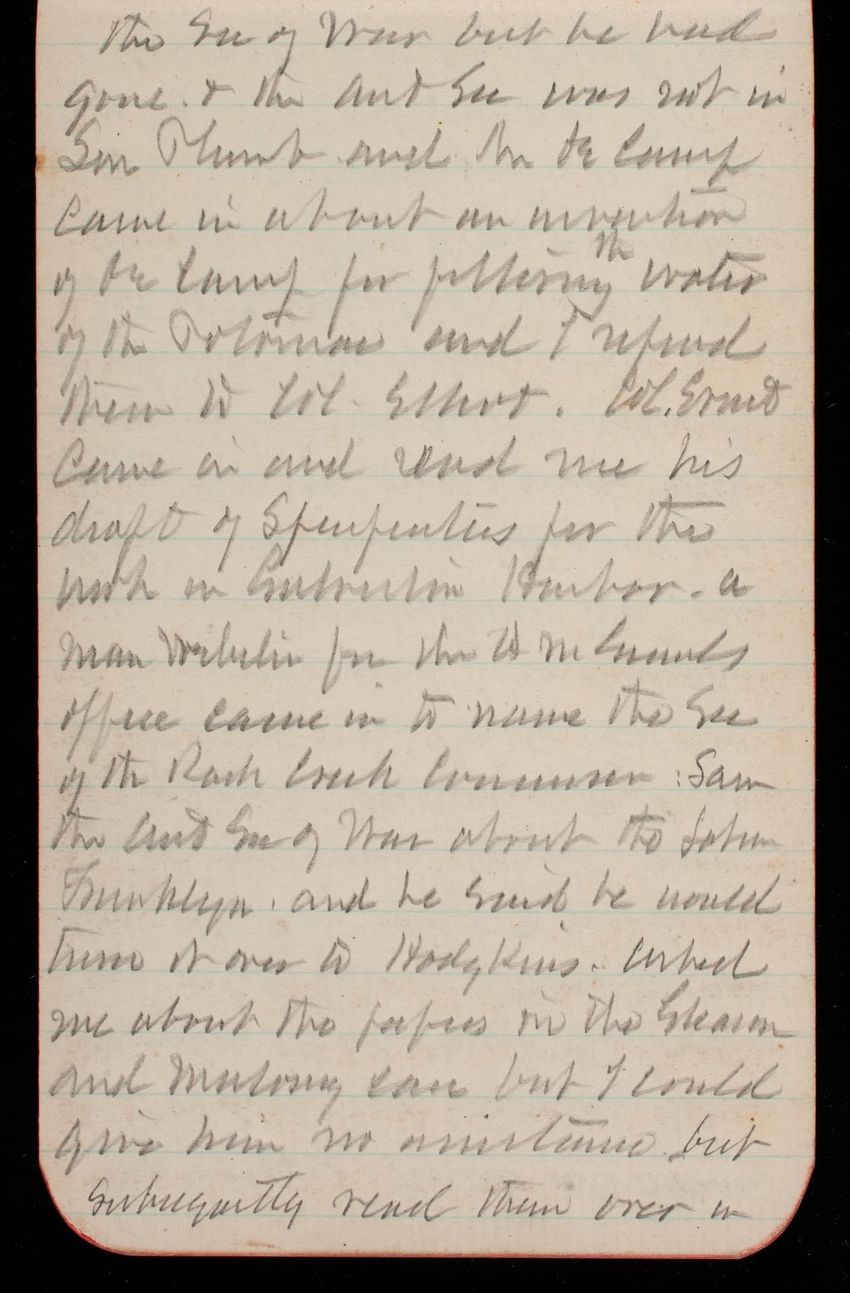 the Sec of War but he had
gone. & the Asst Sec was not in
Sen Plumb and Mr De Camp
came in about an invention
of De Camp for filtering the water
of the Potomac and I referred
them to Col. Elliot. Col. Ernst
came in and read me his
draft of Specificatis for the
work in Galveston Harbor. a
man for the Q M Generals
office came in to name the Sec
of the Rock Creek Commission : Saw
the Asst Sec of War about the John
Franklyn. and he said he would
turn it over to Hodgkins. Asked
me about the papers in the Gleason
and case but I could
give him no assistance. but
subsequetly read them over in